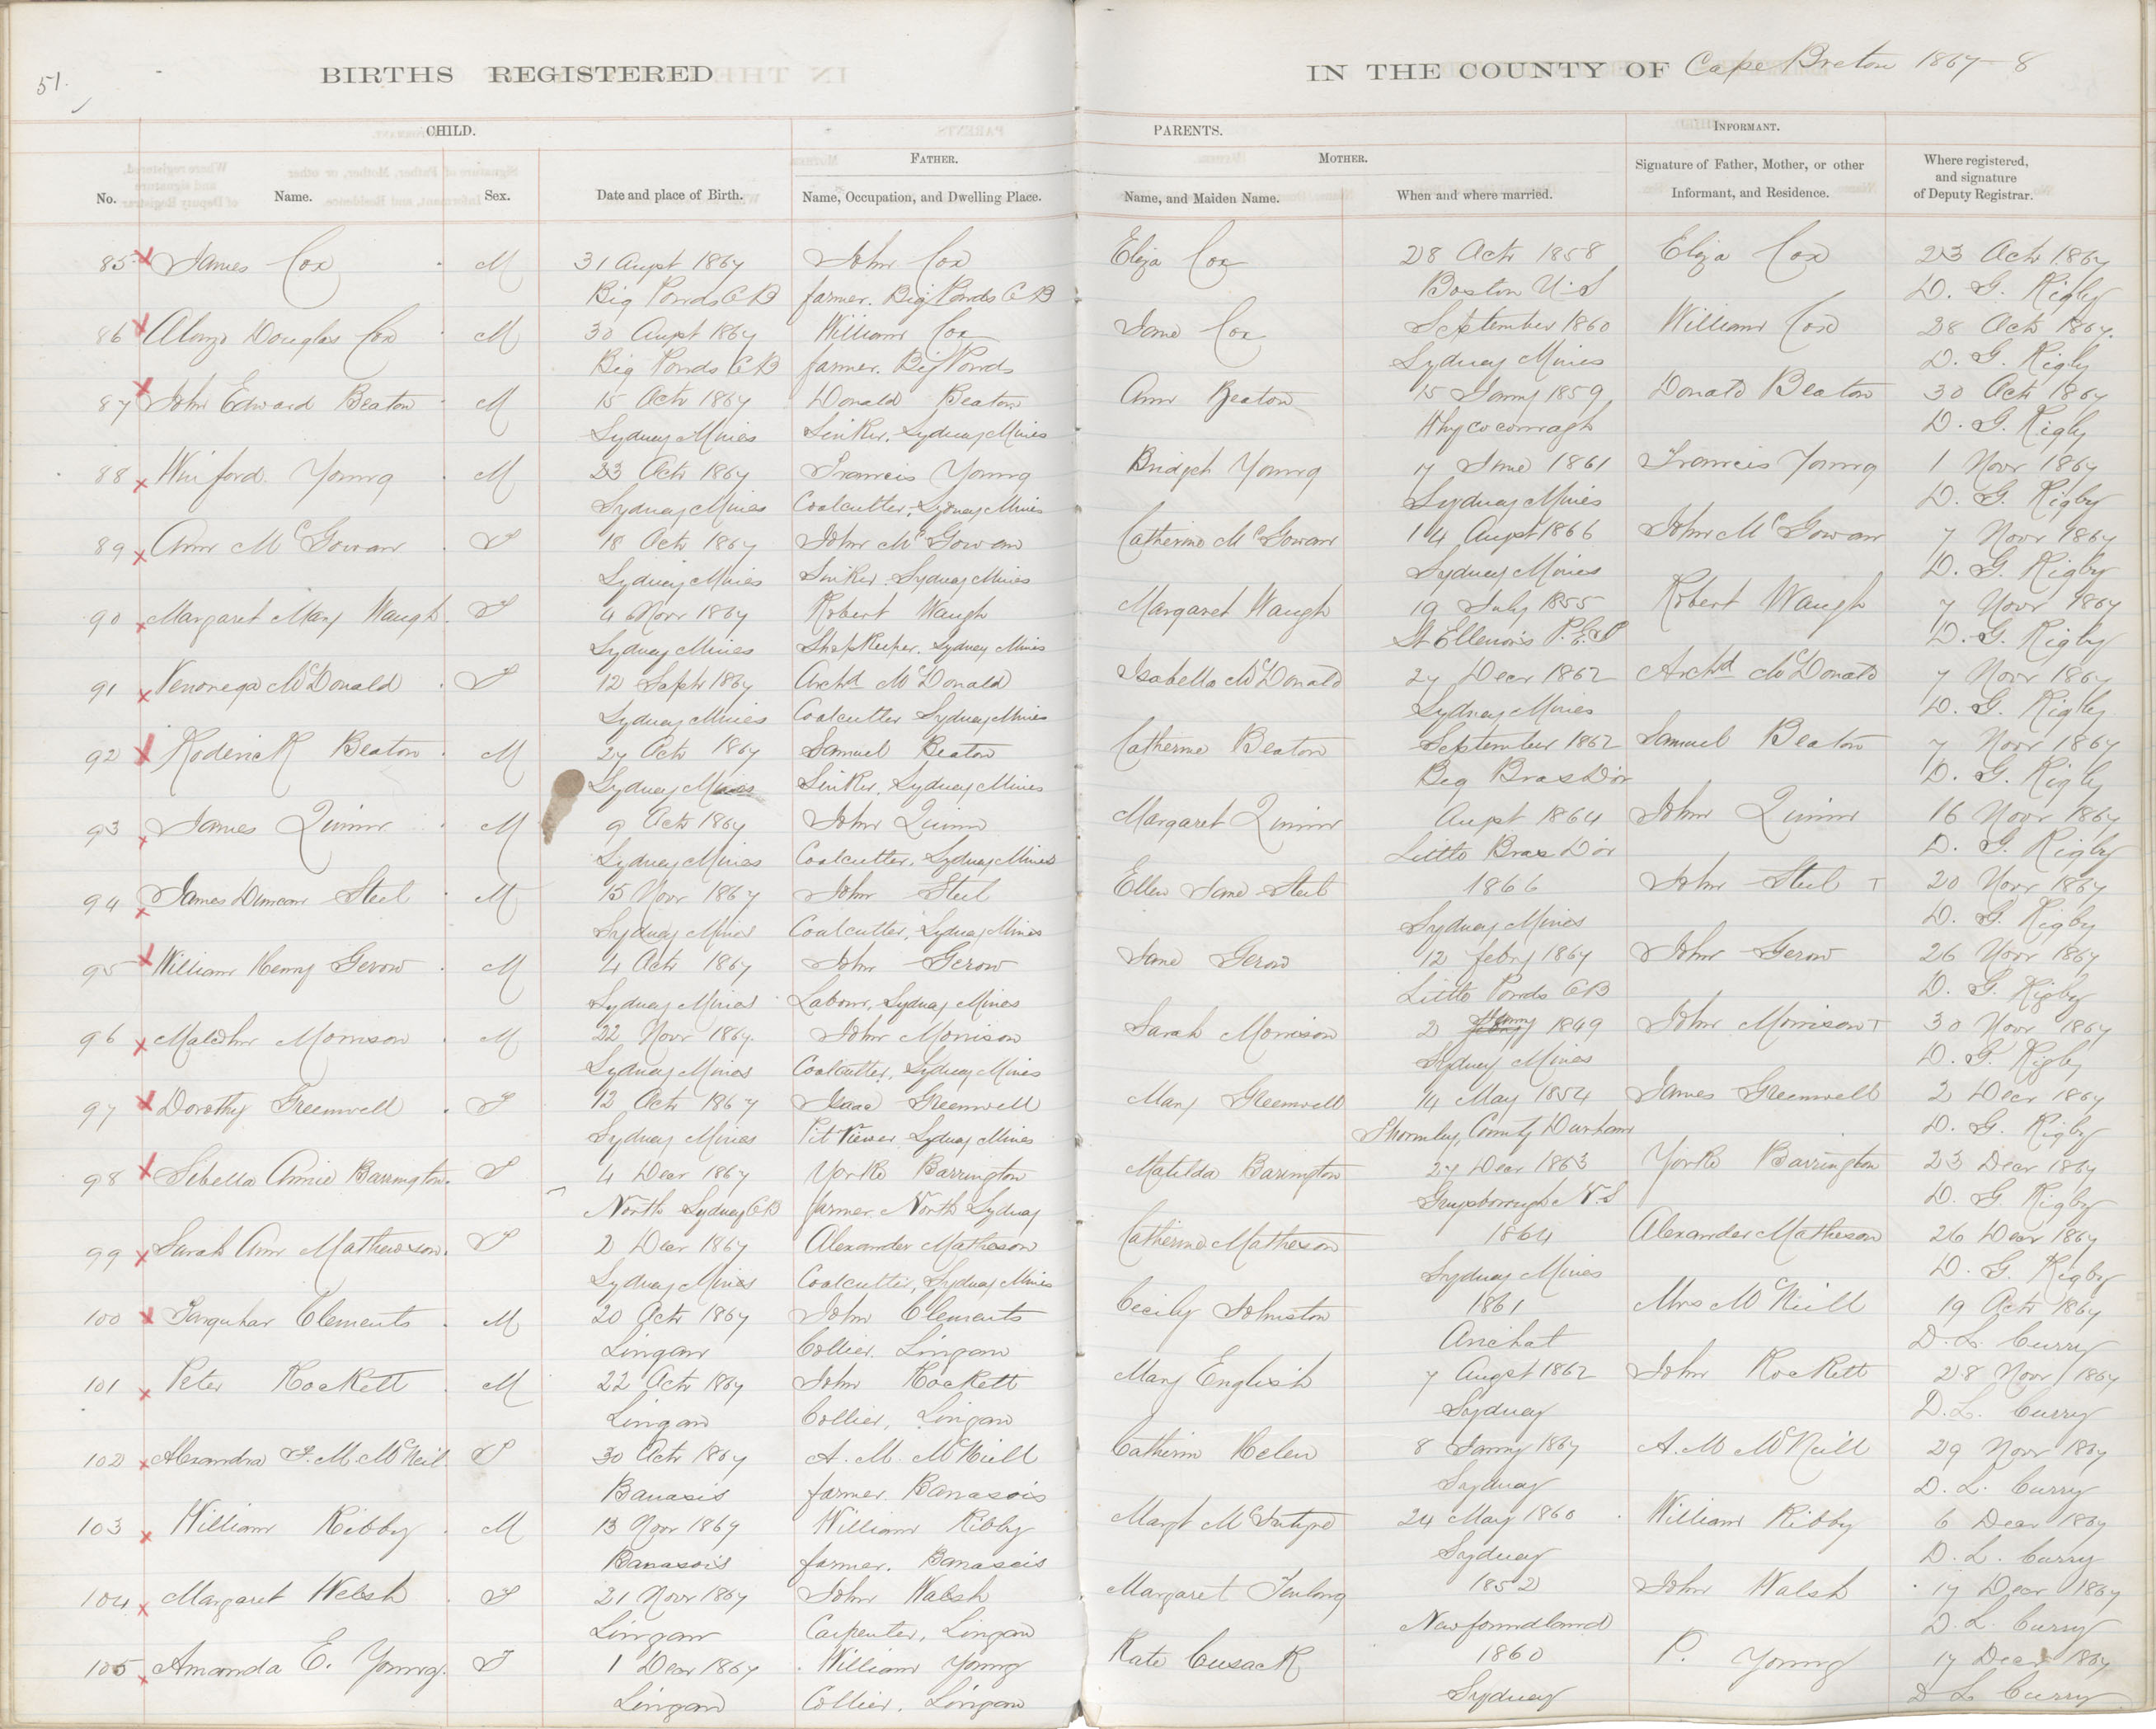 51.
BIRTHS REGISTERED IN THE COUNTY OF Cape Breton 1867-8
CHILD. PARENTS. INFORMANT.
FATHER. MOTHER.
No. Name. Sex. Date and place of Birth. Name, Occupation, and Dwelling Place. Name, and Maiden Name. When and where married. Signature of Father, Mother, or other Informant, and Residence. Where registered, and signature of Deputy Registrar.
85 James Cox M 31 Augst 1867 John Cox Eliza Cox 28 Octr 1858 Eliza Cox 23 Octr 1867
Big Ponds CB farmer. Big Ponds CB Boston U.S D. G. Rigby
86 Alonzo Douglas Cox M 30 Augst 1867 William Cox Jane Cox September 1860 William Cox 28 Octr 1867.
Big Ponds CB farmer. Big Ponds Sydney Mines D. G. Rigby
87 John Edward Beaton M 15 Octr 1867 Donald Beaton Ann Beaton 15 Janny 1859 Donald Beaton 30 Octr 1867
Sydney Mines Sinker. Sydney Mines Whycocomagh D. G. Rigby
88 Winford Young M 23 Octr 1867 Francis Young Bridget Young 17 June 1861 Francis Young 1 Novr 1867
Sydney Mines Coalcutter, Sydney Mines Sydney Mines D. G. Rigby
89 Ann McGowan F 18 Octr 1867 John McGowan Catherine McGowan 14 Augst 1866 John McGowan 7 Novr 1867
Sydney Mines Sinker. Sydney Mines Sydney Mines D. G. Rigby
90 Margaret Mary Waugh F 4 Novr 1867 Robert Waugh Margaret Waugh 19 July 1855 Robert Waugh 7 Novr 1867
Sydney Mines Shopkeeper. Sydney Mines St Ellenois P.E.I D. G. Rigby
91 McDonald F 12 Septr 1867 Archd McDonald Isabella McDonald 27 Decr 1862 Archd McDonald 7 Novr 1867
Sydney Mines Coalcutter Sydney Mines Sydney Mines D. G. Rigby
92 Roderick Beaton M 27 Octr 1867 Samuel Beaton Catherine Beaton September 1862 Samuel Beaton 7 Novr 1867
Sydney Mines Sinker. Sydney Mines Big Bras Dor D. G. Rigby
93 James Quinn M 9 Octr 1867 John Quinn Margaret Quinn Augst 1864 John Quinn 16 Novr 1867
Sydney Mines Coalcutter, Sydney Mines Little Bras Dor D. G. Rigby
94 James Duncan Steel M 15 Novr 1867 John Steel Ellen Jane Steel 1866 John Steel 20 Novr 1867
Sydney Mines Coalcutter, Sydney Mines Sydney Mines D. G. Rigby
95 William Henry Gerow M 4 Octr 1867 John Gerow Jane Gerow 12 febry 1867 John Gerow 26 Novr 1867
Sydney Mines Labour, Sydney Mines Little Ponds CB D. G. Rigby
96 Morrison M 22 Novr 1867. John Morrison Sarah Morrison 2 Janny 1849 John Morrison 30 Novr 1867
Sydney Mines Coalcutter, Sydney Mines Sydney Mines D. G. Rigby
97 Dorothy Greenwell F 12 Octr 1867 Isaac Greenwell Mary Greenwell 14 May 1854 James Greenwell 2 Decr 1867
Sydney Mines Pit Viewer Sydney Mines County Durham D. G. Rigby
98 Sebella Annie Barrington F 4 Decr 1867 Yorke Barrington Matilda Barrington 27 Decr 1863 Yorke Barrington 23 Decr 1867
North Sydney CB farmer. North Sydney Guysborough N.S D. G. Rigby
99 Sarah Ann Mathewson F 2 Decr 1867 Alexander Matheson Catherine Matheson 1864 Alexander Matheson 26 Decr 1867
Sydney Mines Coalcutter, Sydney Mines Sydney Mines D. G. Rigby
100 Farquhar Clements M 20 Octr 1867 John Clements Cecily Johnston 1861 Mrs McNeill 19 Octr 1867
Lingan Collier. Lingan Arichat D. L. Curry
101 Peter Rockett M 22 Octr 1867 John Rockett Mary English 7 Augst 1862 John Rockett 28 Novr 1867
Lingan Collier, Lingan Sydney D. L. Curry
102 Alexandra F. M. McNeil F 30 Octr 1867 A. M. McNeill Catherin Helen 8 Janny 1867 A. M McNeill 29 Novr 1867
Banasis farmer. Banasois Sydney D. L. Curry
103 William Kibby M 13 Novr 1867 William Kibby Margt McIntyre 24 May 1860 William Kibby 6 Decr 1867
Banasois farmer. Banasois Sydney D. L. Curry
104 Margaret Welsh F 21 Novr 1867 John Walsh Margaret Furlong 1852 John Walsh 17 Decr 1867
Lingan Carpenter, Lingan Newfoundland D. L. Curry
105 Amanda E. Young F 1 Decr 1867 William Young Kate Cusack 1860 P. Young 17 Decr 1867
Lingan Collier. Lingan Sydney D L Curry